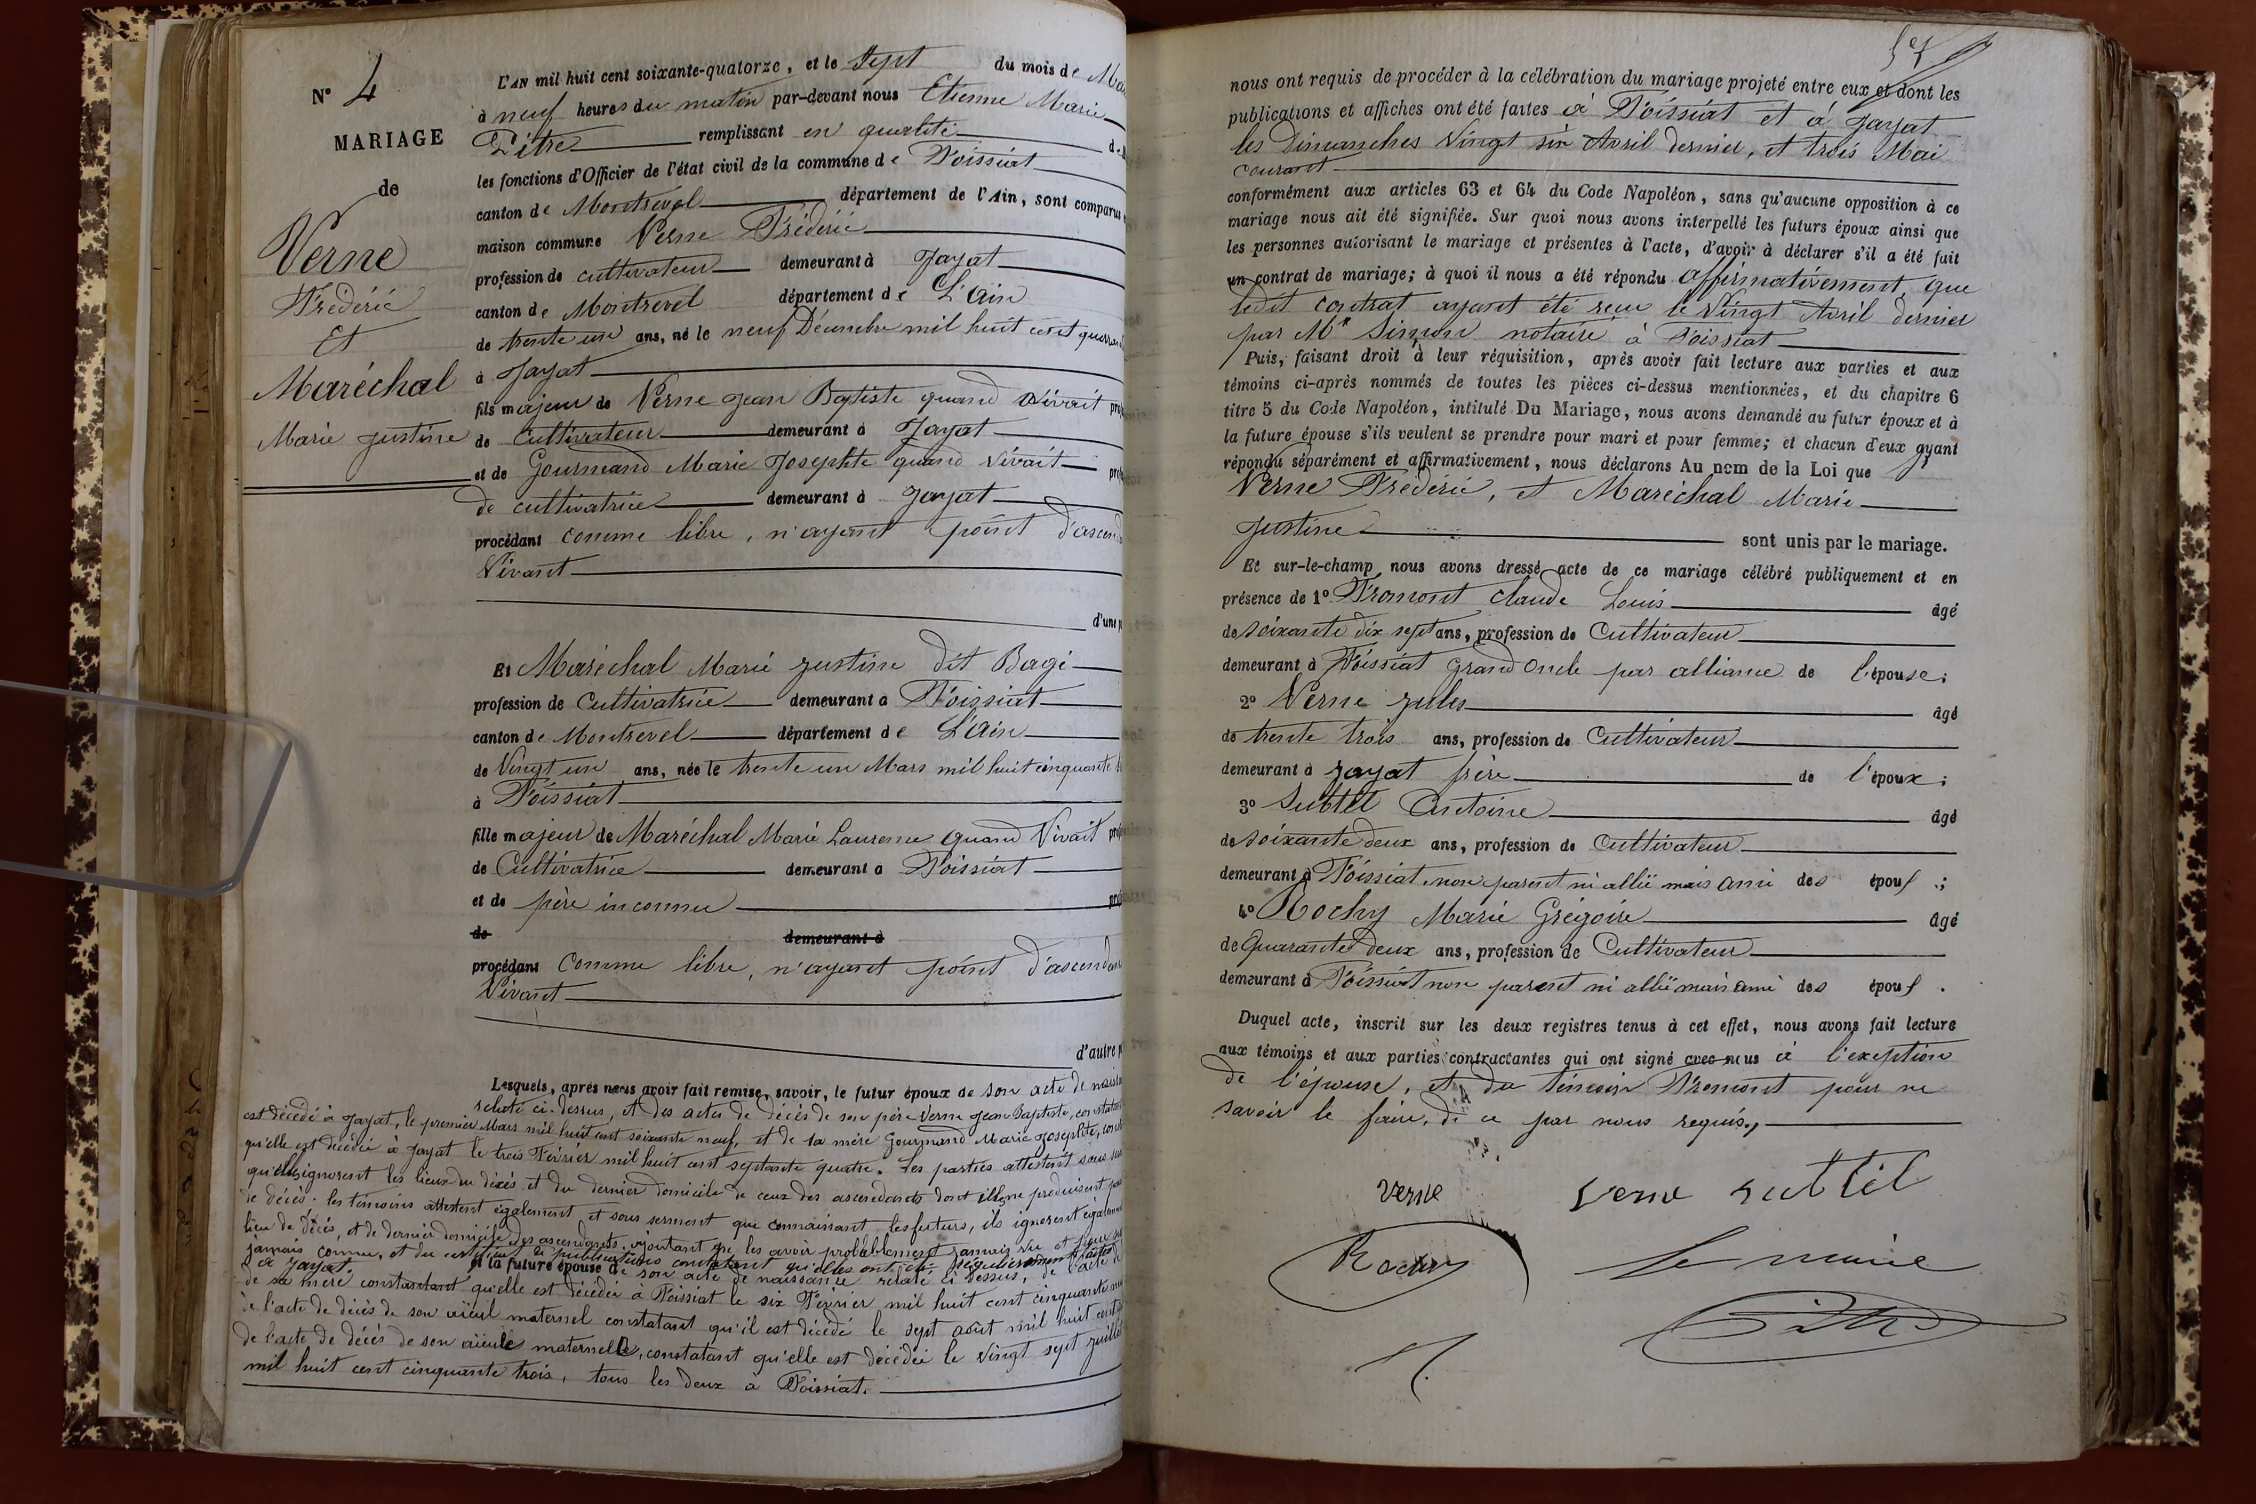 N° 4
MARIAGE
de
Verne
Fréderic
Et
Maréchal
Marie Justine
L'AN mil huit cent soixante-quatorze, et le Sept du mois de Mai
à neuf heures du matin par-devant nous Etienne Marie
Pitre remplissant en qualité de
les fonctions d'Officier de l'état civil de la commune de Foissiat
canton de Montrevel département de l'Ain, sont comparus
maison commune Verne Fréderic
profession de cultivateur demeurant à Jayat
canton de Montrevel département de L'Ain
de trente un ans, né le neuf Décembre mil huit cent quarante
à Jayat
fils majeur de Verne Jean Baptiste quand vivait
de Cultivateur demeurant à Jayat
et de Gourmand Marie Josephte quand vivait
de cultivatrice demeurant à Jayat
procédant comme libre, n'ayant point d'ascendant
Vivant
d'une
Et Maréchal Marie Justine dit Bagé
profession de Cultivatrice demeurant à Foissiat
canton de Montrevel département de L'Ain
de Vingt un ans, née le trente un Mars mil huit cinquante
à Foissiat
fille majeur de Maréchal Marie Laurence quand Vivait
de Cultivatrice demeurant à Foissiat
et de père inconnu
de demeurant à
procédant Comme libre, n'ayant point d'ascendant
Vivant
d'autre
Lesquels, après nous avoir fait remise, savoir, le futur époux de son acte de
relaté ci-dessus, et des actes de décès de son père Verne Jean Baptiste, constatant
est décédé à Jayat, le premier Mars mil huit cent soixante neuf, et de la mère Gourmand Marie Josephte,
qu'elle est décédée à Jayat le trois Février mil huit cent septante quatre. Les parties attestent sous
qu'elles ignorent les lieux du décès et du dernier domicile de ceux des ascendants dont ils ne produisent
de décès. les témoins attestent également et sous serment que connaissant les futurs, ils ignorent
lieu de décès, et de dernier domicile des ascendants, ajoutant que les avoir probablement jamais vu et
jamais connu, et du certificat de publications constatant qu'elles ont été régulièrement faites
à Jayat. et la future épouse de son acte de naissance relaté ci dessus, de l'acte de
de sa mère constatant qu'elle est décédée à Foissiat le six Février mil huit cent cinquante
de l'acte de décès de son aïeul maternel constatant qu'il est décédé le sept août mil huit cent
de l'acte de décès de son aïeule maternelle, constatant qu'elle est décédée le vingt sept juillet
mil huit cent cinquante trois, tous les deux à Foissiat.
nous ont requis de procéder à la célébration du mariage projeté entre eux et dont les
publications et affiches ont été faites à Foissiat et à Jayat
les Dimanches Vingt six Avril dernier, et trois Mai
courant
conformément aux articles 63 et 64 du Code Napoléon, sans qu'aucune opposition à ce
mariage nous ait été signifiée. Sur quoi nous avons interpellé les futurs époux ainsi que
les personnes autorisant le mariage et présentes à l'acte, d'avoir à déclarer s'il a été fait
un contrat de mariage; à quoi il nous a été répondu affirmativement que
ledit contrat ayant été reçu le Vingt Avril dernier
par Me Simon notaire à Foissiat
Puis, faisant droit à leur réquisition, après avoir fait lecture aux parties et aux
témoins ci-après nommés de toutes les pièces ci-dessus mentionnées, et du chapitre 6
titre 5 du Code Napoléon, intitulé Du Mariage, nous avons demandé au futur époux et à
la future épouse s'ils veulent se prendre pour mari et pour femme; et chacun d'eux ayant
répondu séparément et affirmativement, nous déclarons Au nom de la Loi que
Verne Fréderic, et Maréchal Marie
Justine sont unis par le mariage.
Et sur-le-champ nous avons dressé acte de ce mariage célébré publiquement et en
présence de 1° Fromont Claude Louis âgé
de soixante dix sept ans, profession de Cultivateur
demeurant à Foissiat grand oncle par alliance de l'épouse;
2° Verne Jules âgé
de trente trois ans, profession de Cultivateur
demeurant à Jayat frère de l'époux;
3° Subtil Antoine âgé
de soixante deux ans, profession de Cultivateur
demeurant à Foissiat, non parent ni allié mais ami des époux;
4° Rochy Marie Grégoire âgé
de Quarante deux ans, profession de Cultivateur
demeurant à Foissiat non parent ni allié mais ami des époux.
Duquel acte, inscrit sur les deux registres tenus à cet effet, nous avons fait lecture
aux témoins et aux parties contractantes qui ont signé avec nous à l'exeption
de l'épouse, et du témoin Fromont pour ne
savoir le faire, de ce par nous requis,
verne verne subtil
Rochy Le maire
Pitre